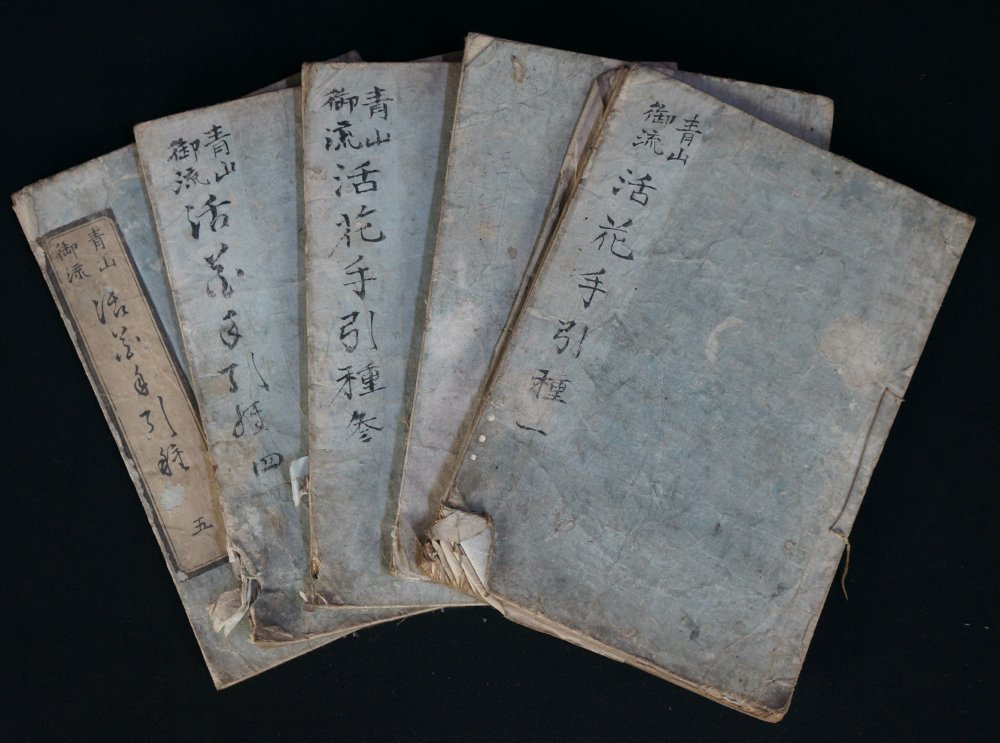 青山御流 活花手引種 一
三
青山御流 活花手引種 参
青山御流 活花手引種 四
青山御流 活花手引種 五